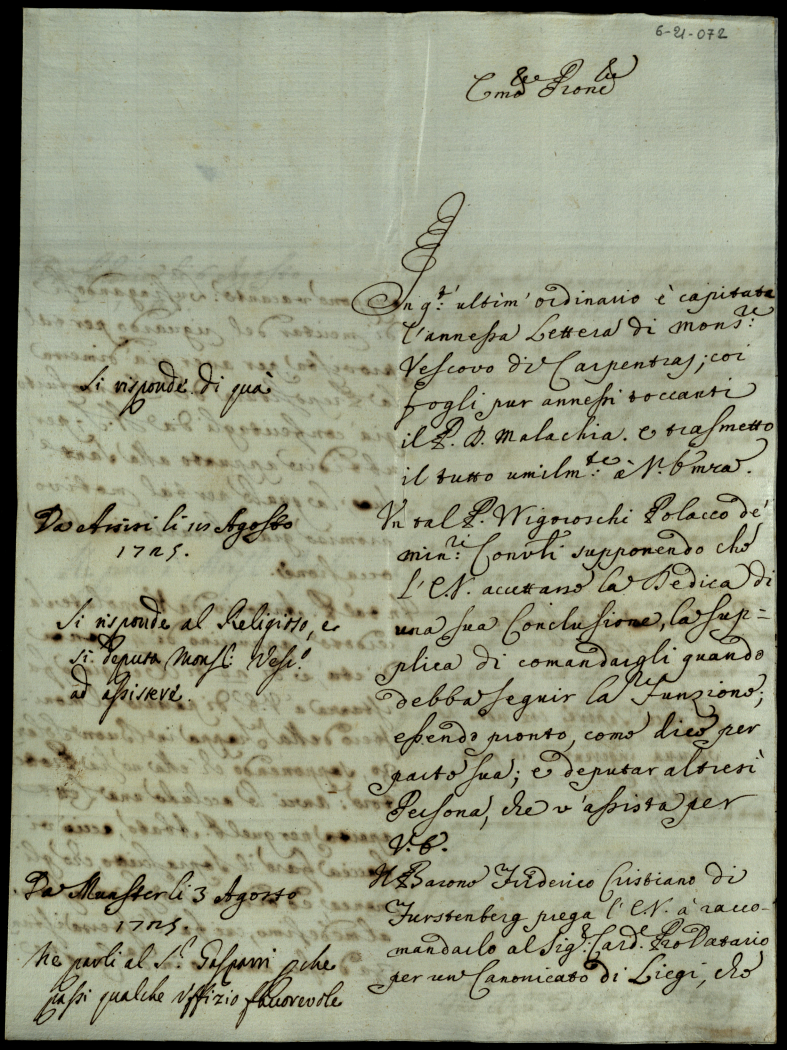 6-21-072
Em̃o e Pr̃one
In q.ta ultim' ordinario è capitata
l'annessa Lettera di Mons.r
Vescovo di Carpentras; coi
fogli pur annessi toccanti
il P. D. Malachia. e trasmetto
il tutto umilm.te à V. Emza.
Si risponde di quà
Un tal P. Wigoroschi Polacco de'
Min.ri Conv.li supponendo che
l'E.V. accettasse la Dedica di
una sua Conclusione, la sup=
plica di comandargli quando
debba seguir la Funzione;
essendo pronto, come dice per
parte sua; e deputar altresì
Persona, che v'assista per
V. E.
Da Assisi li Agosto
1725.
Si risponde al Religioso, et
si deputa Mons.r Vesc.o
ad assistere.
Il Barone Friderico Cristiano di
Furstenberg prega l'E.V. à racco-
mandarlo al Sig.r Card. Pro Datario
per un Canonicato di Liegi, che
Da Munster li 3 Agosto
1725.
Ne parli al S.r Gasparri che
passi qualche Uffizio favorevole